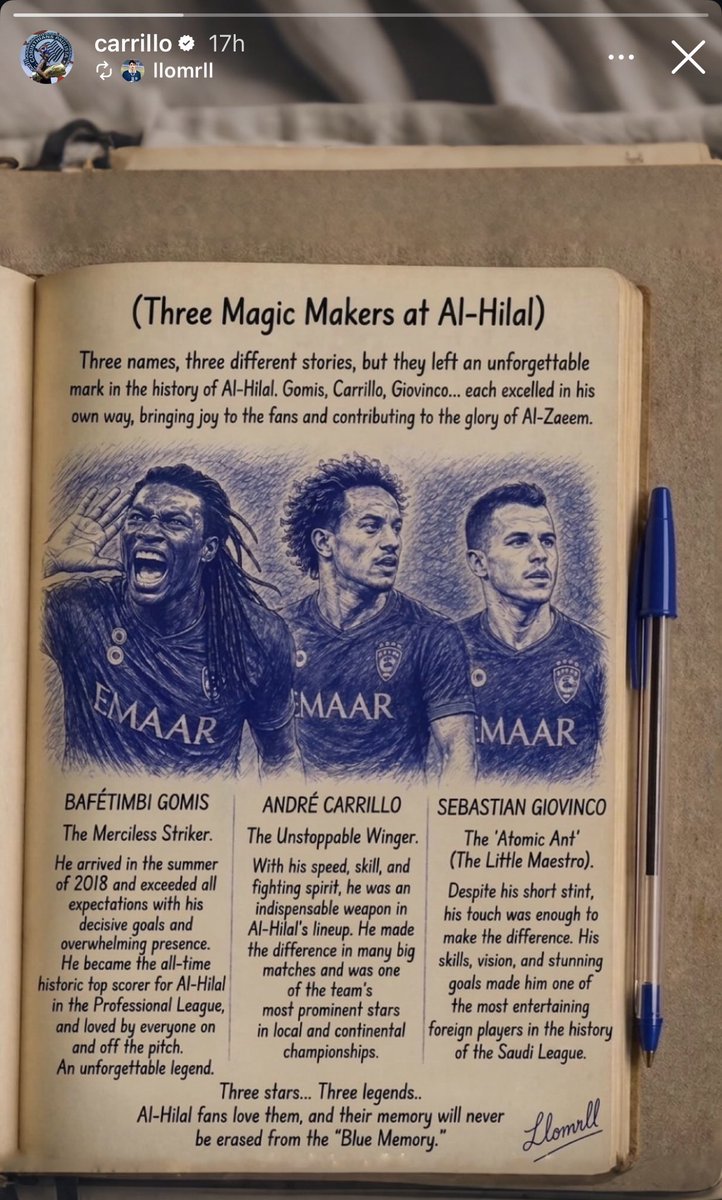 carrillo 17h
llomrll
(Three Magic Makers at Al-Hilal)
Three names, three different stories, but they left an unforgettable
mark in the history of Al-Hilal. Gomis, Carrillo, Giovinco... each excelled in his
own way, bringing joy to the fans and contributing to the glory of Al-Zaeem.
EMAAR
EMAAR
EMAAR
BAFÉTIMBI GOMIS
The Merciless Striker.
He arrived in the summer
of 2018 and exceeded all
expectations with his
decisive goals and
overwhelming presence.
He became the all-time
historic top scorer for Al-Hilal
in the Professional League,
and loved by everyone on
and off the pitch.
An unforgettable legend.
ANDRÉ CARRILLO
The Unstoppable Winger.
With his speed, skill, and
fighting spirit, he was an
indispensable weapon in
Al-Hilal's lineup. He made
the difference in many big
matches and was one
of the team's
most prominent stars
in local and continental
championships.
SEBASTIAN GIOVINCO
The 'Atomic Ant'
(The Little Maestro).
Despite his short stint,
his touch was enough to
make the difference. His
skills, vision, and stunning
goals made him one of
the most entertaining
foreign players in the history
of the Saudi League.
Three stars... Three legends..
Al-Hilal fans love them, and their memory will never
be erased from the “Blue Memory.”
Llomrll